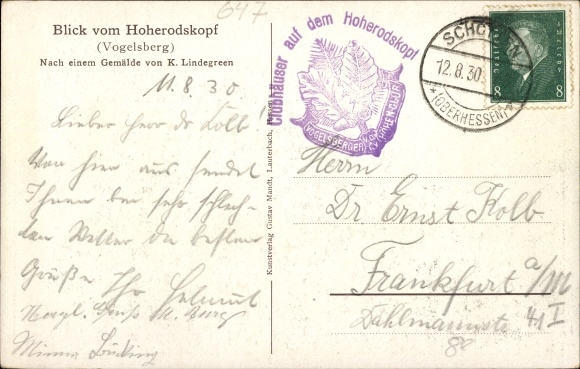 647
Blick vom Hoherodskopf
(Vogelsberg)
Nach einem Gemälde von K. Lindegreen
11.8.30
Lieber Herr Dr Kolb!
Von hier aus sendet
Ihnen bei sehr schlech-
ten Wetter die besten
Grüße Ihr Helmut
Herzl. Gruß
Minna Bücking
Kunstverlag Gustav Mandt, Lauterbach, Hessen
Clubhäuser auf dem Hoherodskopf
VOGELSBERGER
SCHOTTEN
12.8.30
*(OBERHESSEN)*
Deutsches Reich
8 8
Herrn
Dr Ernst Kolb
Frankfurt a/M
Dahlmannstr 41 I